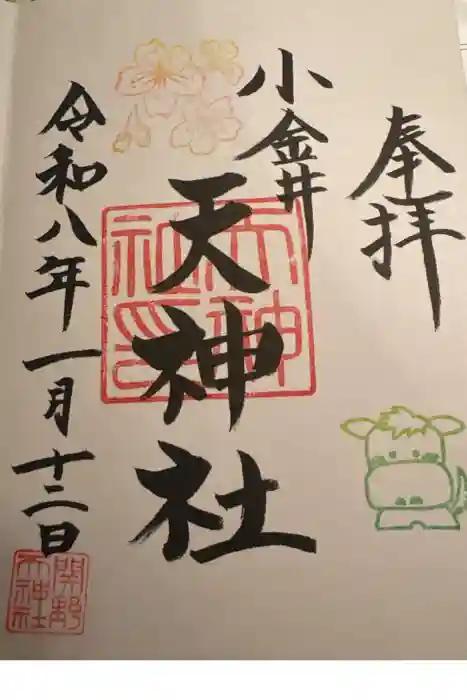 奉拝
小金井
天神社
令和八年一月十二日
天神
社印
関野
天神社